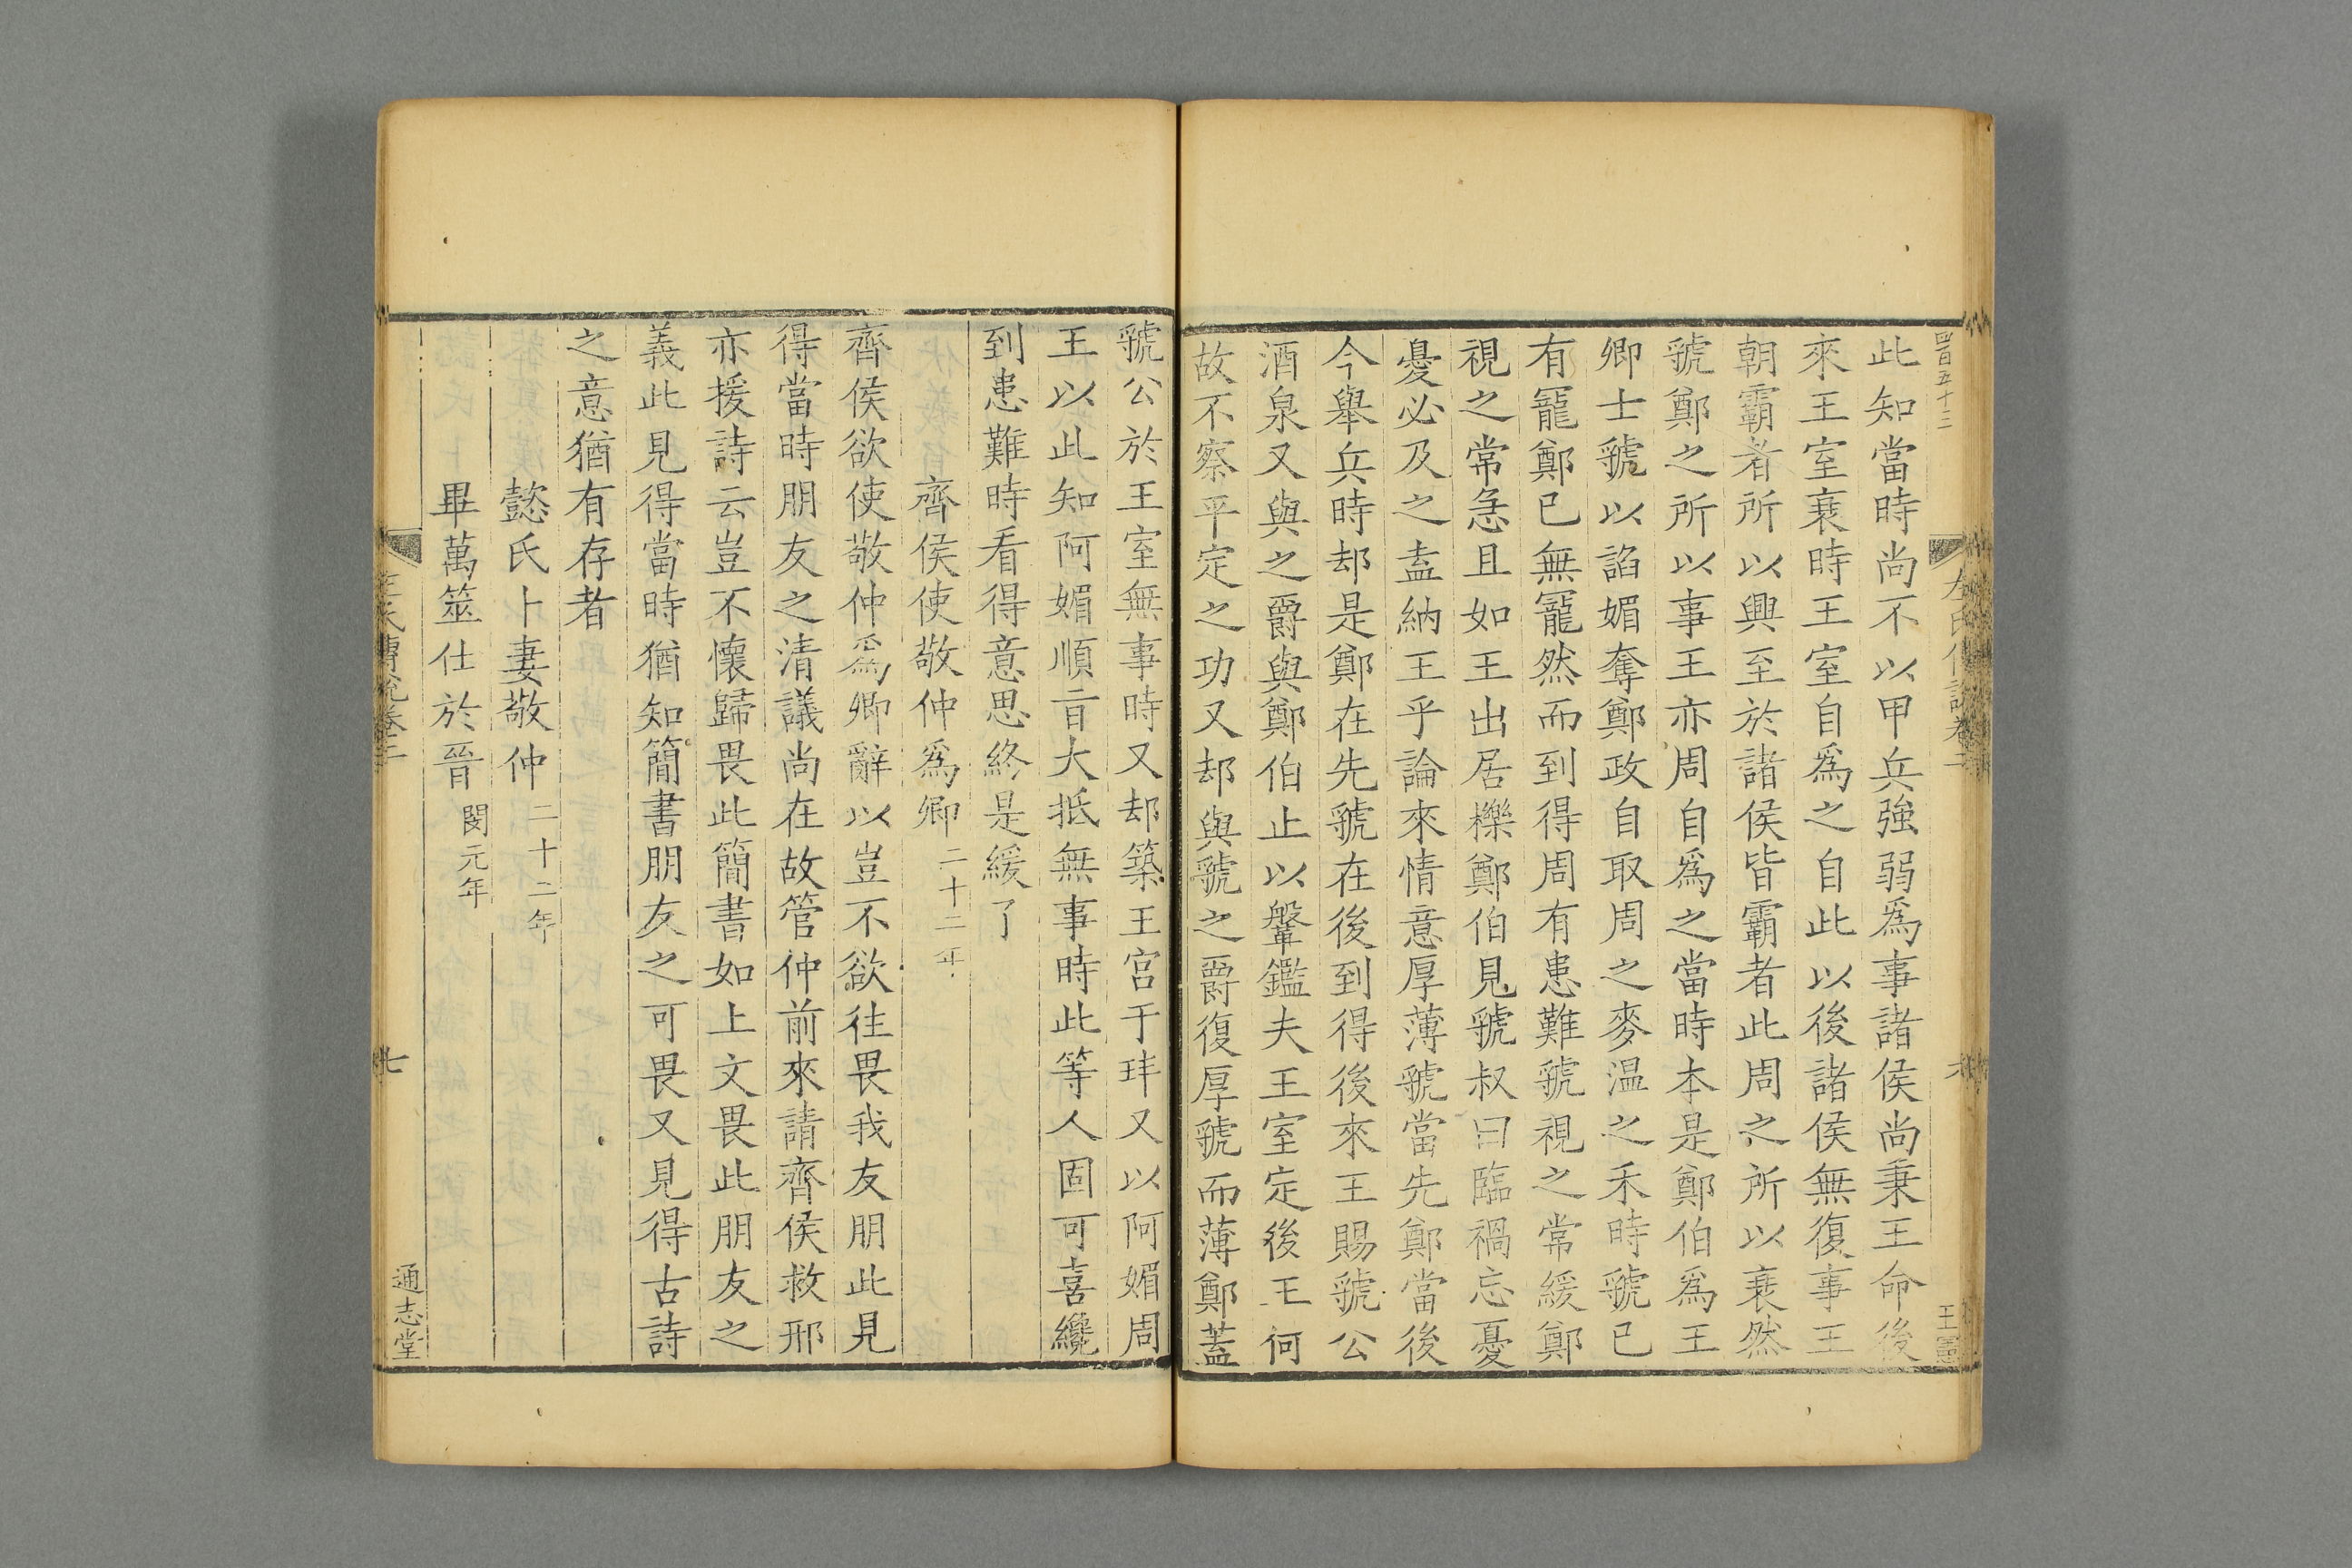 四百五十三
左氏傳說卷二
六
王憲
此知當時尚不以甲兵強弱爲事諸侯尚秉王命後
來王室衰時王室自爲之自此以後諸侯無復事王
朝霸者所以興至於諸侯皆霸者此周之所以衰然
虢鄭之所以事王亦周自爲之當時本是鄭伯爲王
卿士虢以諂媚奪鄭政自取周之麥温之禾時虢已
有寵鄭已無寵然而到得周有患難虢視之常緩鄭
視之常急且如王出居櫟鄭伯見虢叔曰臨禍忘憂
憂必及之盍納王乎論來情意厚薄虢當先鄭當後
今舉兵時却是鄭在先虢在後到得後來王賜虢公
酒泉又與之爵與鄭伯止以鞶鑑夫王室定後王何
故不察平定之功又却與虢之爵復厚虢而薄鄭蓋
虢公於王室無事時又却築王宮于玤又以阿媚周
王以此知阿媚順旨大抵無事時此等人固可喜纔
到患難時看得意思終是緩了
齊侯使敬仲爲卿二十二年
齊侯欲使敬仲爲卿辭以豈不欲往畏我友朋此見
得當時朋友之清議尚在故管仲前來請齊侯救邢
亦援詩云豈不懷歸畏此簡書如上文畏此朋友之
義此見得當時猶知簡書朋友之可畏又見得古詩
之意猶有存者
懿氏卜妻敬仲二十二年
畢萬筮仕於晉閔元年
左氏傳說卷二
七
通志堂